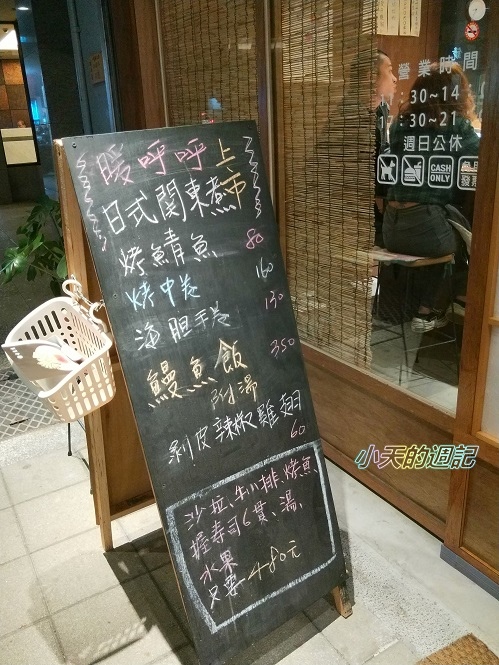 暖呼呼上市
日式関東煮
烤鯖魚 80
烤中卷 160
海胆手卷 130
鰻魚飯 350
附湯
剝皮辣椒雞翅
60
沙拉、牛小排、烤魚、
握寿司6貫、湯、
水果
只要480元
營業時間
17:30~21
週日公休
CASH
ONLY
發票
小天的週記